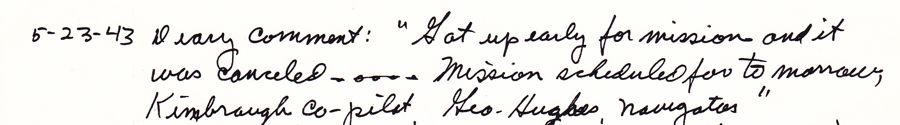 5-23-43 Diary comment: "Got up early for mission and it
was canceled - o o o - Mission scheduled for to morrow,
Kimbraugh co-pilot, Geo. Hughes, navigator"